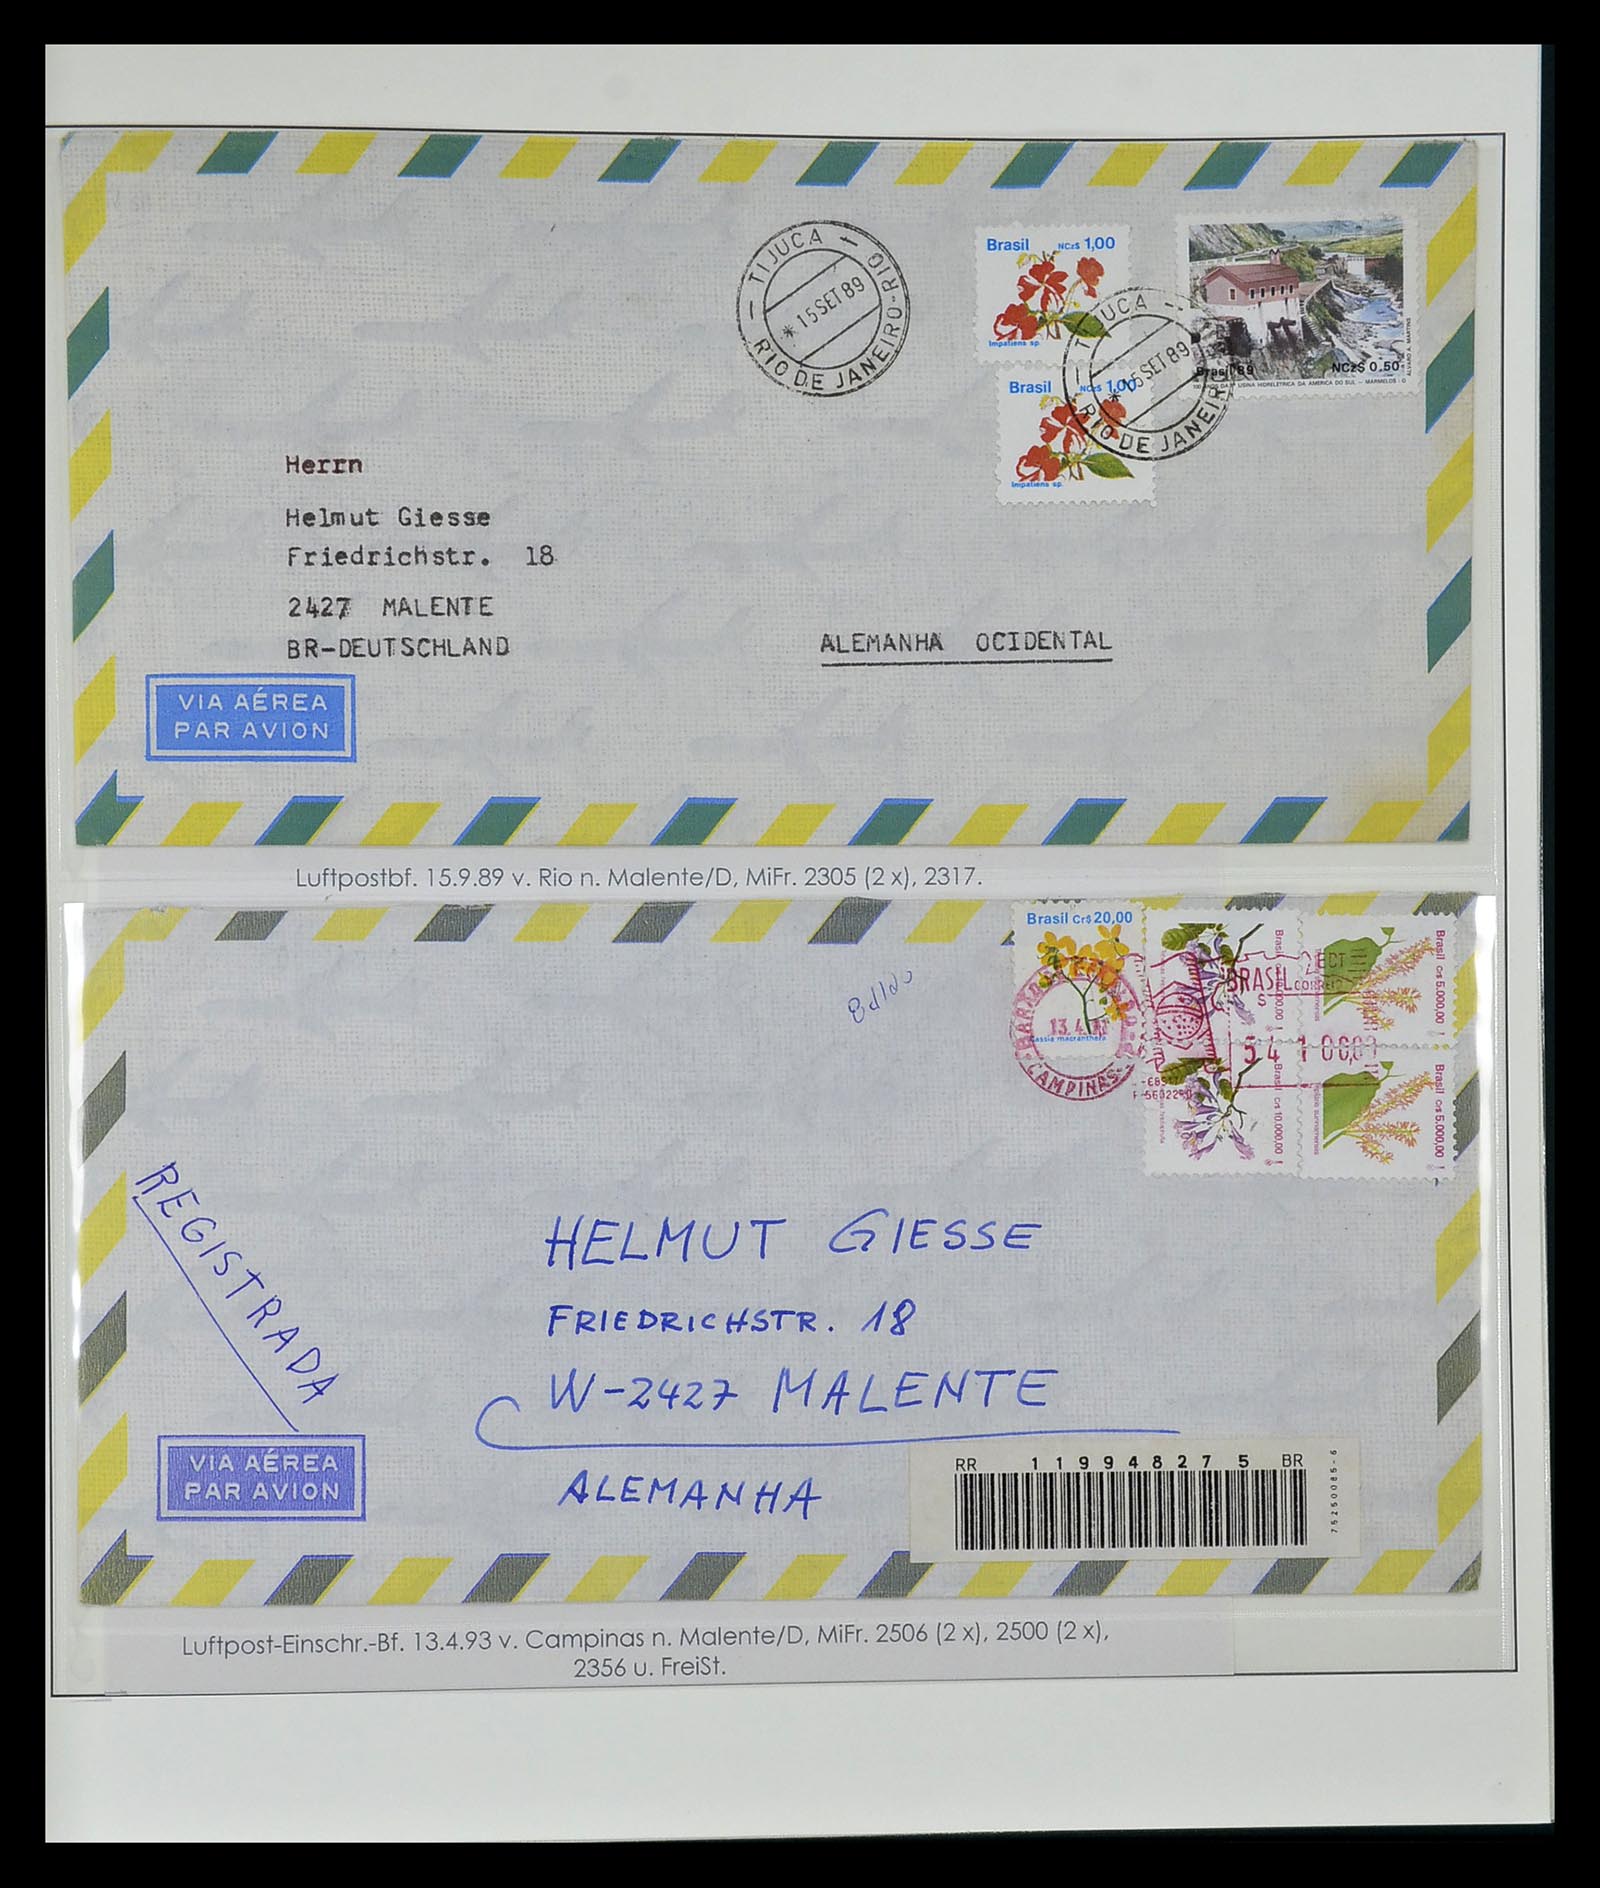 TIJUCA
* 15 SET 89
RIO DE JANEIRO-RIO
Brasil NCz$ 1,00
Impatiens sp.
Brasil NCz$ 1,00
Impatiens sp.
TIJUCA
* 15 SET 89
RIO DE JANEIRO
Brasil 89 NCz$ 0.50
100 ANOS DA 1ª USINA HIDRELÉTRICA DA AMÉRICA DO SUL — MARMELOS - O
ÁLVARO A. MARTINS
Herrn
Helmut Giesse
Friedrichstr. 18
2427 MALENTE
BR-DEUTSCHLAND
ALEMANHA OCIDENTAL
VIA AÉREA
PAR AVION
Luftpostbf. 15.9.89 v. Rio n. Malente/D, MiFr. 2305 (2 x), 2317.
Brasil Cr$ 20,00
Cassia macranthera
13.4.
CAMPINAS
BRASIL
CORREIO
ECT
54 10
Brasil Cr$ 5.000,00
Brasil Cr$ 10.000,00
Brasil Cr$ 5.000,00
REGISTRADA
HELMUT GIESSE
FRIEDRICHSTR. 18
W-2427 MALENTE
ALEMANHA
VIA AÉREA
PAR AVION
RR 119948275 BR
75250085-6
Luftpost-Einschr.-Bf. 13.4.93 v. Campinas n. Malente/D, MiFr. 2506 (2 x), 2500 (2 x),
2356 u. FreiSt.